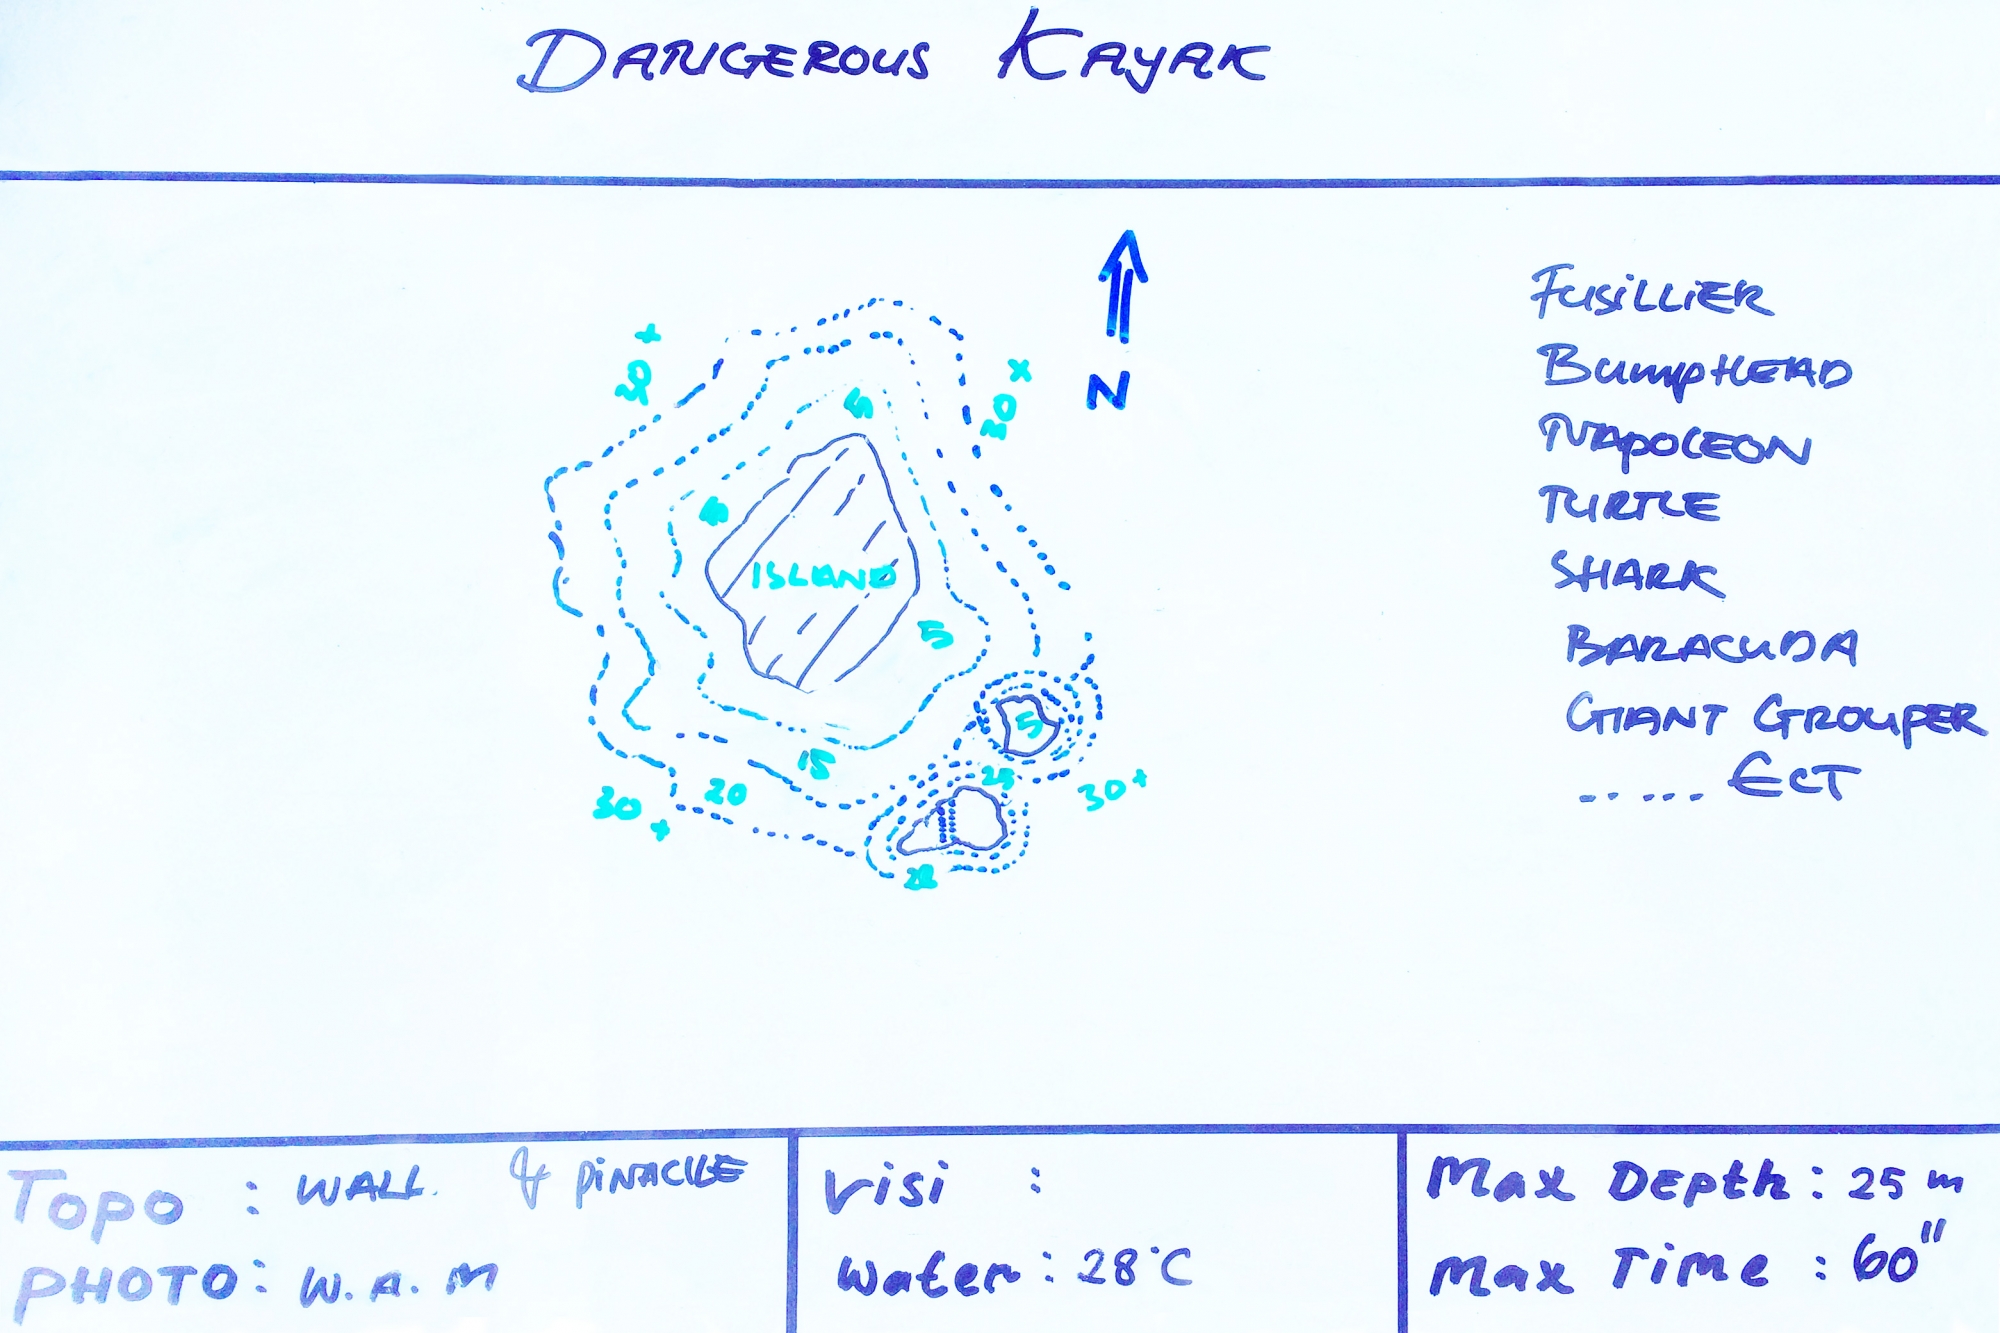 DANGEROUS KAYAK
N
30+
30+
5
5
ISLAND
5
5
15
25
20
30+
30+
FUSILLIER
BUMPHEAD
NAPOLEON
TURTLE
SHARK
BARACUDA
GIANT GROUPER
..... ECT
TOPO : WALL & PINACLLE
PHOTO: W.A.M
Visi :
Water : 28°C
Max Depth : 25 m
Max Time : 60"